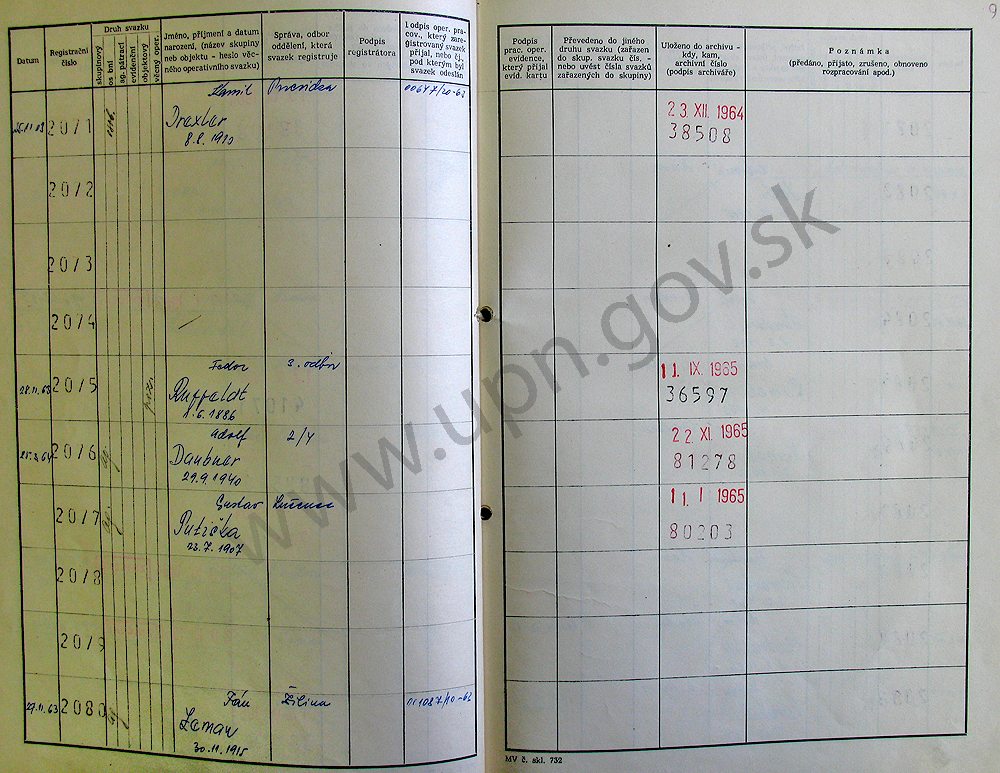 9
Datum
Registrační
číslo
Druh svazku
skupinový
os bní
sg. pátrací
evidenční
objektový
věcný oper.
Jméno, příjmení a datum
narození, (název skupiny
neb objektu - heslo věc-
ného operativního svazku)
Správa, odbor
oddělení, která
svazek registruje
Podpis
registrátora
l odpis oper. pra-
cov., který zare-
gistrovaný svazek
přijal, nebo čj.,
pod kterým byl
svazek odeslán
Podpis
prac. oper.
evidence,
který přijal
evid. kartu
Převedeno do jiného
druhu svazku (zařazen
do skup. svazku čís. -
nebo uvést čísla svazků
zařazených do skupiny)
Uloženo do archivu -
kdy, kam,
archivní číslo
(podpis archiváře)
Poznámka
(předáno, přijato, zrušeno, obnoveno
rozpracování apod.)
Kamil Prievidza 00647/20-63
20/1 Drexler
8.8.1910
23. XII. 1964
38508
20/2
20/3
20/4
Fedor 3. odbor
28.11.63 20/5 Ruffaldt
1.6.1886
11. IX. 1965
36597
Adolf 2/4
20/6 Daubner
29.9.1940
22. XI. 1965
81278
Gustav Lučenec
20/7 Putička
23.7.1907
11. I 1965
80203
20/8
20/9
Ján Žilina
29.11.63 2080 Zeman
30.11.1915
MV č. skl. 732
www.upn.gov.sk